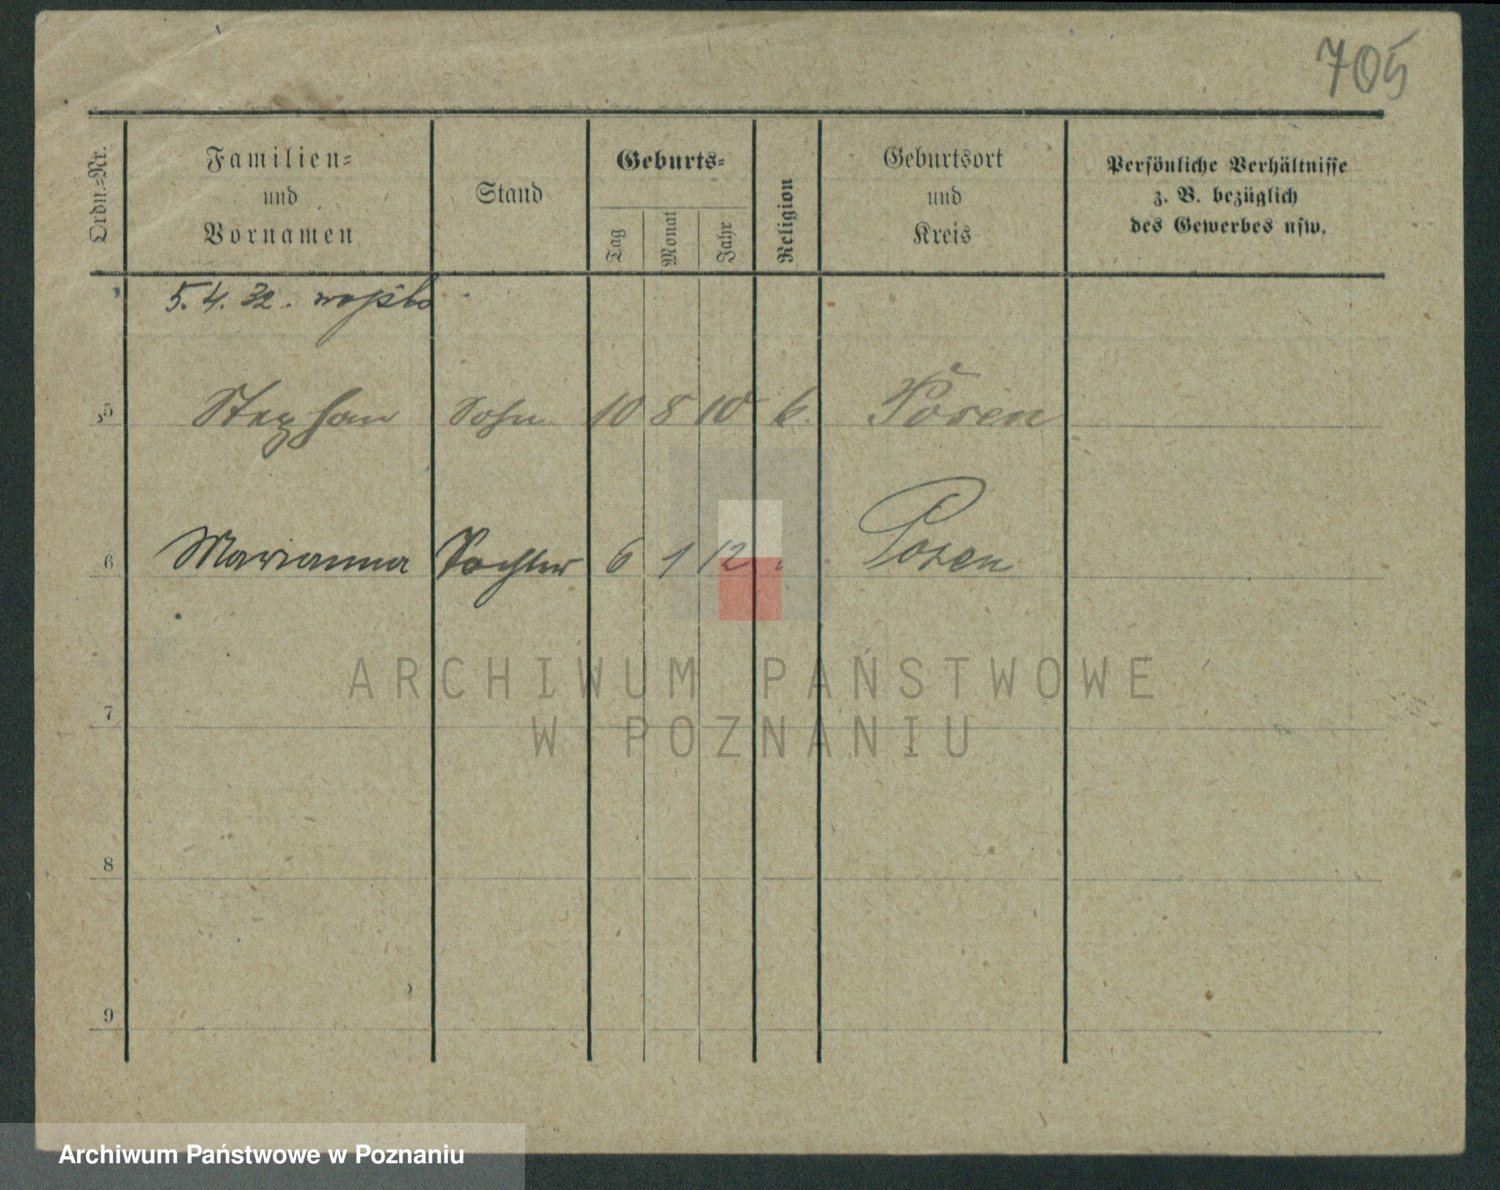 705
Ordn.=Nr.
Familien=
und
Vornamen
Stand
Geburts=
Tag
Monat
Jahr
Religion
Geburtsort
und
Kreis
Persönliche Verhältnisse
z. B. bezüglich
des Gewerbes usw.
5. 4. 32.
5 Stephan Sohn 10 8 10 k. Posen
6 Marianna Tochter 6 1 12 Posen
ARCHIWUM PAŃSTWOWE
W POZNANIU
7
8
9
Archiwum Państwowe w Poznaniu